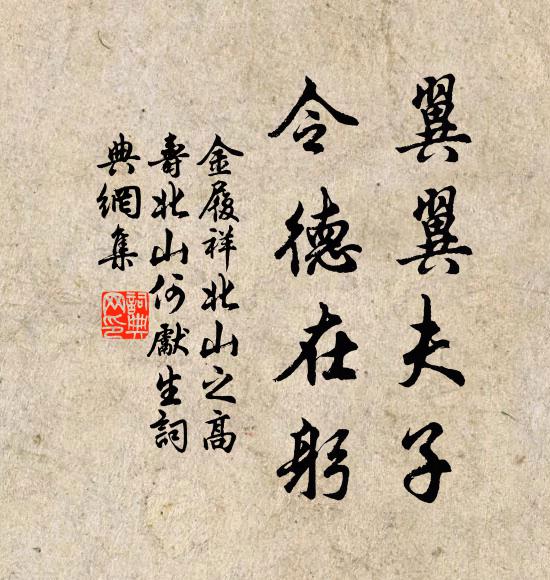 翼翼夫子
令德在躬
金履祥北山之高
壽北山何獻生詞
典網集
詞典网印